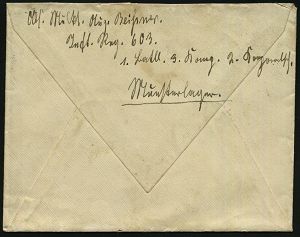 Abs. Musk. Aug. Beißner.
Inft. Reg. 603.
1. Batl. 3. Komp. 2. Korporalsch.
Munsterlager.